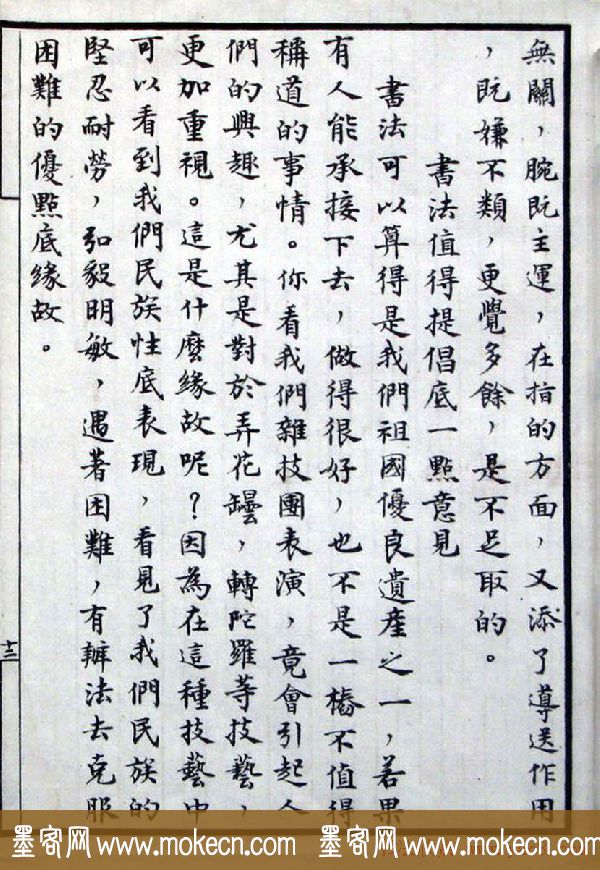 無關，腕既主運，在指的方面，又添了導送作用
，既嫌不類，更覺多餘，是不足取的。
書法值得提倡底一點意見
書法可以算得是我們祖國優良遺產之一，若果
有人能承接下去，做得很好，也不是一樁不值得
稱道的事情。你看我們雜技團表演，竟會引起人
們的興趣，尤其是對於弄花罎，轉陀羅等技藝，
更加重視。這是什麼緣故呢？因為在這種技藝中
可以看到我們民族性底表現，看見了我們民族的
堅忍耐勞，弘毅明敏，遇著困難，有辦法去克服
困難的優點底緣故。
十三
墨客网 www.mokecn.com 墨客网 www.mokecn.com